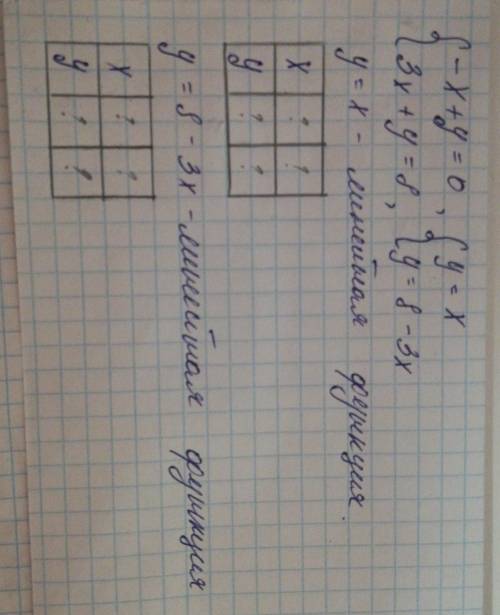 { -x + y = 0, { y = x
{ 3x + y = 8, { y = 8 - 3x
y = x - линейная функция.
x ? ?
y ? ?
y = 8 - 3x - линейная функция
x ? ?
y ? ?